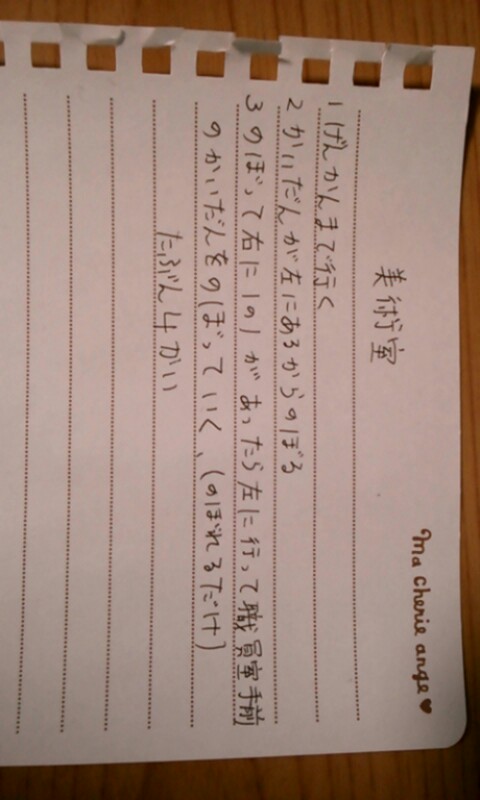 Ma cherie ange♥
美術室
1 げんかんまで行く
2 かいだんが左にあるからのぼる
3 のぼって右に101があったら左に行って職員室手前
のかいだんをのぼっていく、(のぼれるだけ)
たぶん4かい